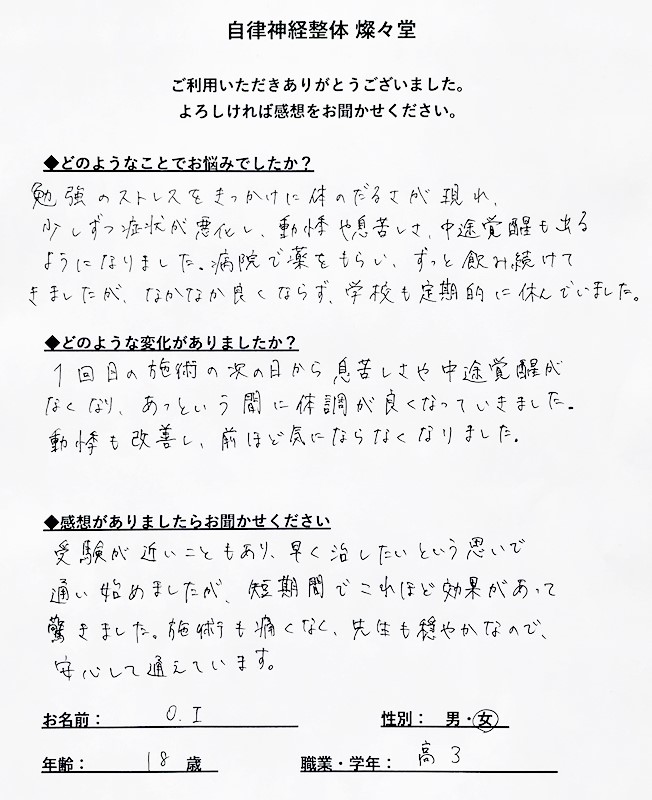 自律神経整体 燦々堂
ご利用いただきありがとうございました。
よろしければ感想をお聞かせください。
◆どのようなことでお悩みでしたか？
勉強のストレスをきっかけに体のだるさが現れ、
少しずつ症状が悪化し、動悸や息苦しさ、中途覚醒も出る
ようになりました。病院で薬をもらい、ずっと飲み続けて
きましたが、なかなか良くならず、学校も定期的に休んでいました。
◆どのような変化がありましたか？
1回目の施術の次の日から息苦しさや中途覚醒が
なくなり、あっという間に体調が良くなっていきました。
動悸も改善し、前ほど気にならなくなりました。
◆感想がありましたらお聞かせください
受験が近いこともあり、早く治したいという思いで
通い始めましたが、短期間でこれほど効果があって
驚きました。施術も痛くなく、先生も穏やかなので、
安心して通えています。
お名前： O.I 性別： 男・女
年齢： 18 歳 職業・学年： 高3